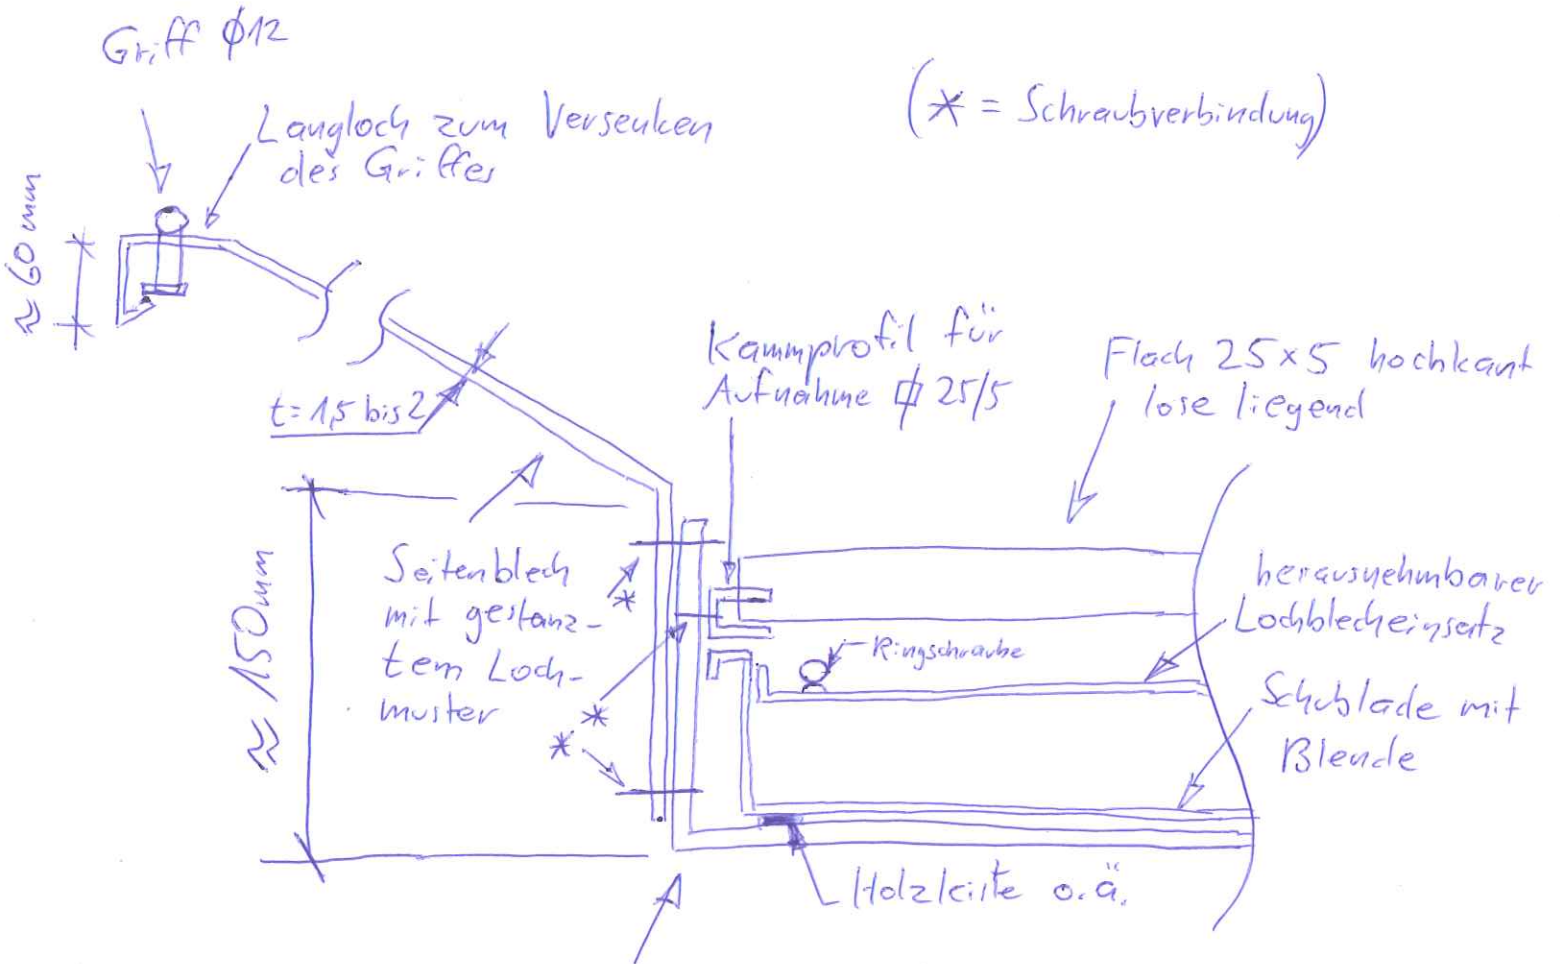 Griff ϕ12
Langloch zum Versenken
des Griffes
(* = Schraubverbindung)
≈ 60 mm
t=1,5 bis 2
Kammprofil für
Aufnahme ϕ 25/5
Flach 25×5 hochkant
lose liegend
Seitenblech
mit gestanz-
tem Loch-
muster
≈ 150mm
*
*
*
Ringschraube
herausnehmbarer
Lochblecheinsatz
Schublade mit
Blende
Holzleiste o.ä.